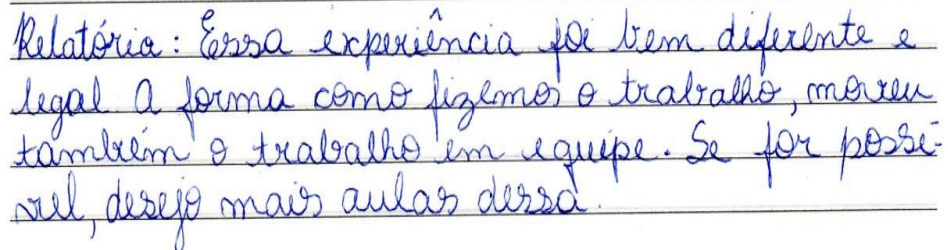 Relatória: Essa experiência foi bem diferente e
legal a forma como fizemos o trabalho, moveu
também o trabalho em equipe. Se for possí-
vel, desejo mais aulas dessa.